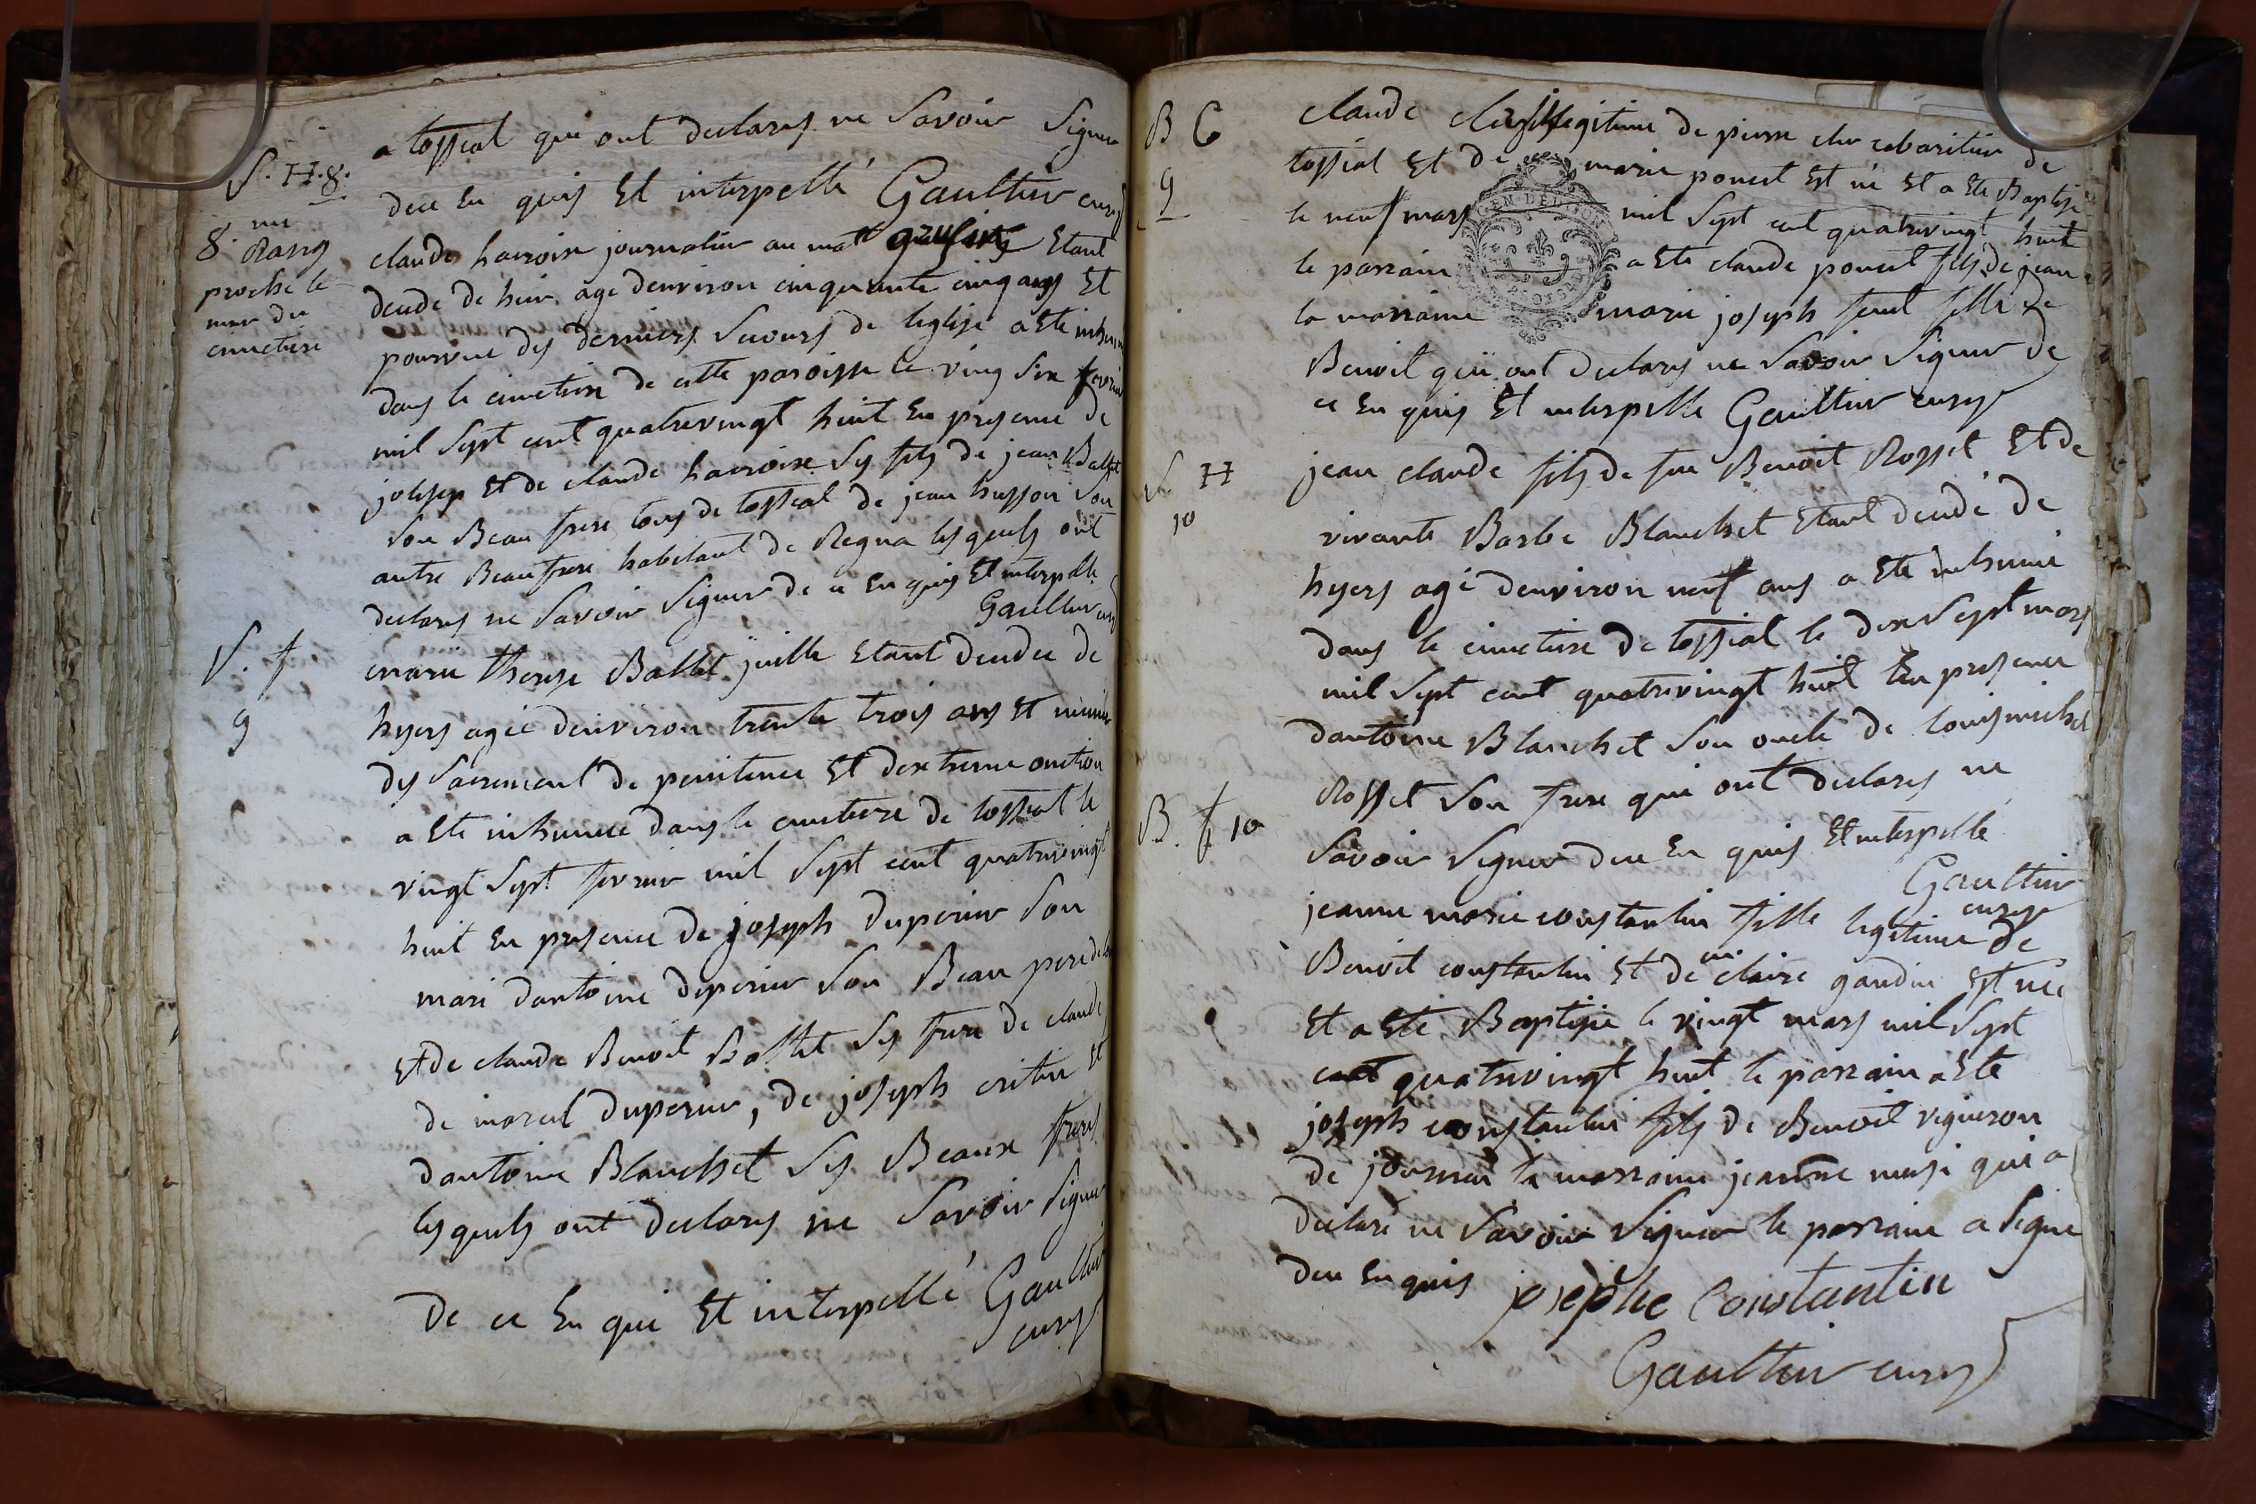 a tossiat qui ont declarés ne savoir signer
S. H. 8.
dece en quis et interpellé Gaultier curé
8. rang
proche le
mur du
cimetiere
claude havroise journalier au etant
decedé de hier agé denviron cinquante cinq ans et
pourvue des derniers secours de leglise a ete inhumé
dans le cimetiere de cette paroisse le ving six fevrier
mil sept cent quatrevingt huit en presence de
joseph et de claude havroise ses fils de jean Ballet
son Beau frere tous de tossiat de jean husson son
autre Beau frere habitant de Regna les quels ont
declarés ne savoir signer de ce en quis et interpelle
Gaultier curé
S. f
9
marie therese Ballet juille etant decedee de
hyers agée denviron trente trois ans et munie
des sacrement de penitence et dextreme onction
a ete inhumée dans le cimetiere de tossiat le
vingt sept fevrier mil sept cent quatrevingt
huit en presence de joseph duperier son
mari dantoine duperier son Beau pere de
et de claude Benoit Ballet ses frere de claude
de marcel duperier, de joseph et
dantoine Blanchet ses Beaux freres
les quels ont declarés ne savoir signer
de ce en qui et interpellé Gaultier
curé
B G
9
claude legitime de pierre cabaretier de
tossiat et de marie poncet est né et a ete Baptisé
le neuf mars mil sept cent quatrevingt huit
GEN. DE DIJON
le parrain a ete claude poncet fils de jean
la marraine marie joseph fille de
Benoit qui ont declarés ne savoir signer de
ce en quis et interpelle Gaultier curé
S. H
10
jean claude fils de feu Benoit Rosset et de
vivante Barbe Blanchet etant decedé de
hyers agé denviron neuf ans a ete inhumé
dans le cimetiere de tossiat le dix sept mars
mil sept cent quatrevingt huit en presence
dantoine Blanchet son oncle de louis michel
Rosset son frere qui ont declarés ne
savoir signer dece en quis et interpelle
Gaultier
curé
B. f 10
jeanne marie constantin fille legitime de
Benoit constantin et de claire gandin est née
et a été Baptisée le vingt mars mil sept
cent quatrevingt huit le parrain a ete
joseph constantin fils de Benoit vigneron
de journan la marraine jeanne qui a
declaré ne savoir signer le parrain a signe
dece enquis josephe Constantin
Gaultier curé